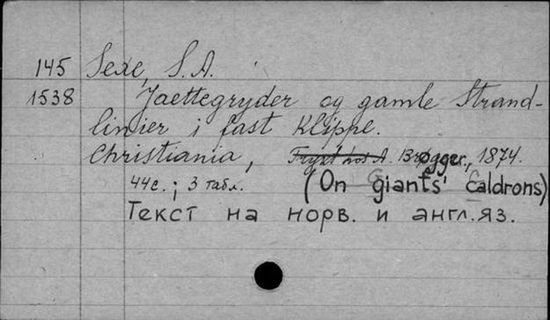 145 Sexe, S.A.
1538 Jaettegryder og gamle Strand-
linier i fast Klippe.
Christiania, A. Brøgger, 1874.
44с.; 3 табл. (On giants' Caldrons)
Текст на норв. и англ.яз.